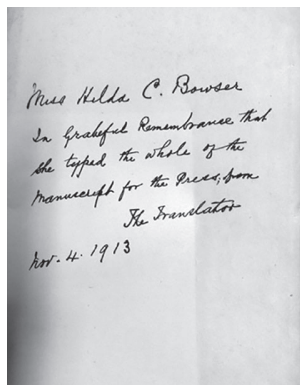 Miss Hilda C. Bowser
In Grateful Remembrance that
she typed the whole of the
Manuscript for the Press, from
The Translator
Nov. 4. 1913